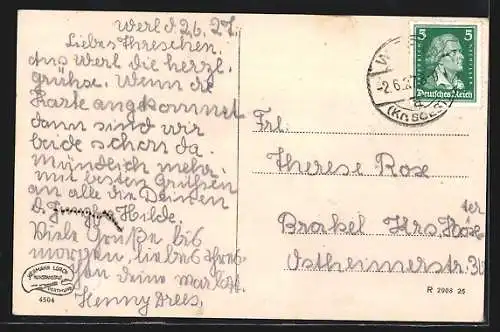 Werl d. 2.6.27.
Liebes Threschen.
Aus Werl die herzl.
grüße. Wenn die
Karte angekommet
dann sind wir
beide schon da.
Mündlich mehr.
mit besten Grüßen
an alle die Deinen
d. Hilde.
Viele Grüße bis
morgen, liebes
deine
Henny Drees.
HERMANN LORCH
KUNSTANSTALT
DORTMUND
4504
5 5
Deutsches Reich
-2.6.27
(Kr. SOEST)
Frl.
Therese Rose
Brakel Krs. Höxter
Ostheimerstr. 36
R 2908 25